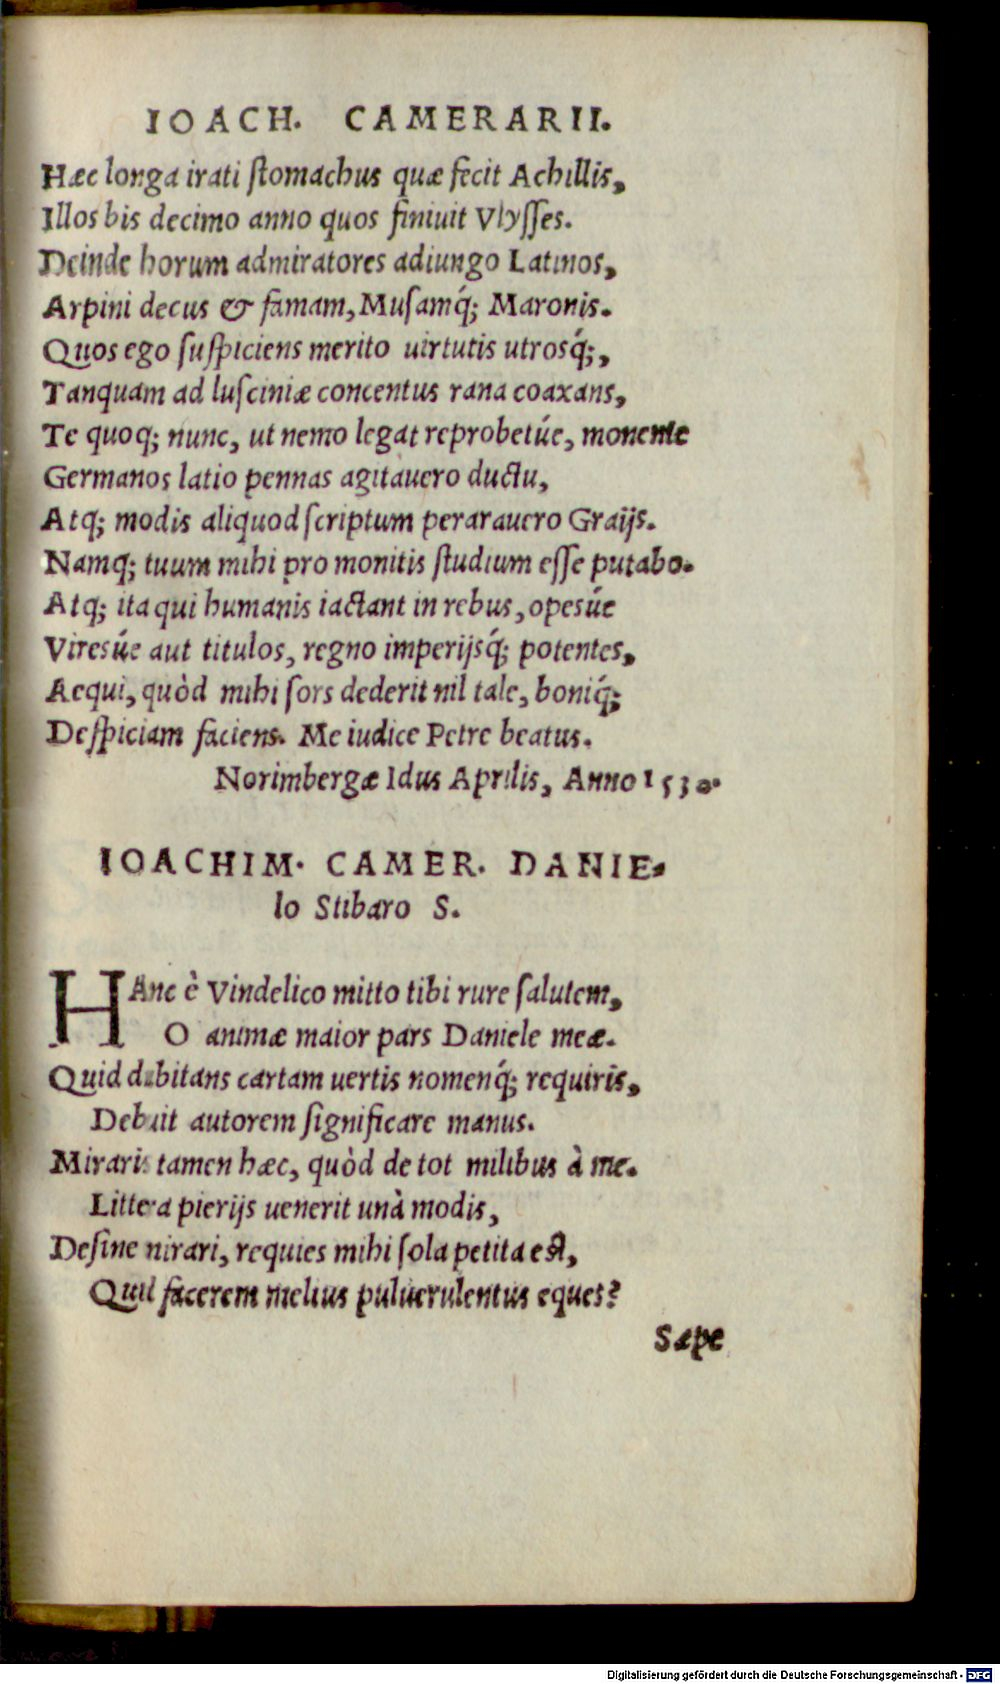 IOACH. CAMERARII.
Hæc longa irati ſtomachus quæ fecit Achillis,
Illos bis decimo anno quos finiuit Vlyſſes.
Deinde horum admiratores adiungo Latinos,
Arpini decus & famam, Muſamq́; Maronis.
Quos ego ſuſpiciens merito uirtutis utroſq́;,
Tanquam ad luſciniæ concentus rana coaxans,
Te quoq; nunc, ut nemo legat reprobetúe, monente
Germanos latio pennas agitauero ductu,
Atq; modis aliquod ſcriptum perarauero Graijs.
Namq; tuum mihi pro monitis ſtudium eſſe putabo.
Atq; ita qui humanis iactant in rebus, opesúe
Viresúe aut titulos, regno imperijsq́; potentes,
Aequi, quòd mihi ſors dederit nil tale, boniq́;
Deſpiciam faciens. Me iudice Petre beatus.
Norimbergæ Idus Aprilis, Anno 1530.
IOACHIM. CAMER. DANIE-
lo Stibaro S.
HAnc è Vindelico mitto tibi rure ſalutem,
O animæ maior pars Daniele meæ.
Quid dubitans cartam uertis nomenq́; requiris,
Debuit autorem ſignificare manus.
Miraris tamen hæc, quòd de tot milibus à me.
Littera pierijs uenerit unà modis,
Deſine mirari, requies mihi ſola petita est,
Quid facerem melius puluerulentus eques?
Sæpe
Digitalisierung gefördert durch die Deutsche Forschungsgemeinschaft - DFG